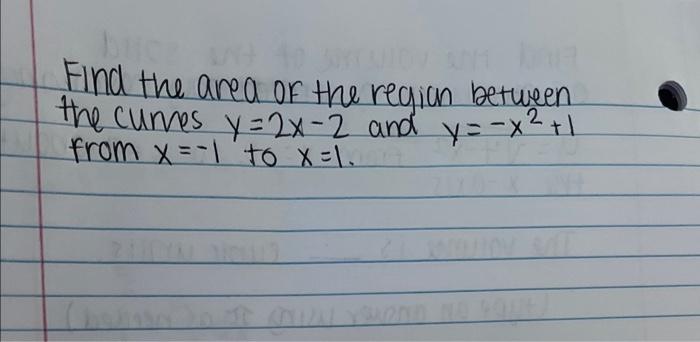 Find the area of the region between
the curves y=2x-2 and y=-x²+1
from x=-1 to x=1.